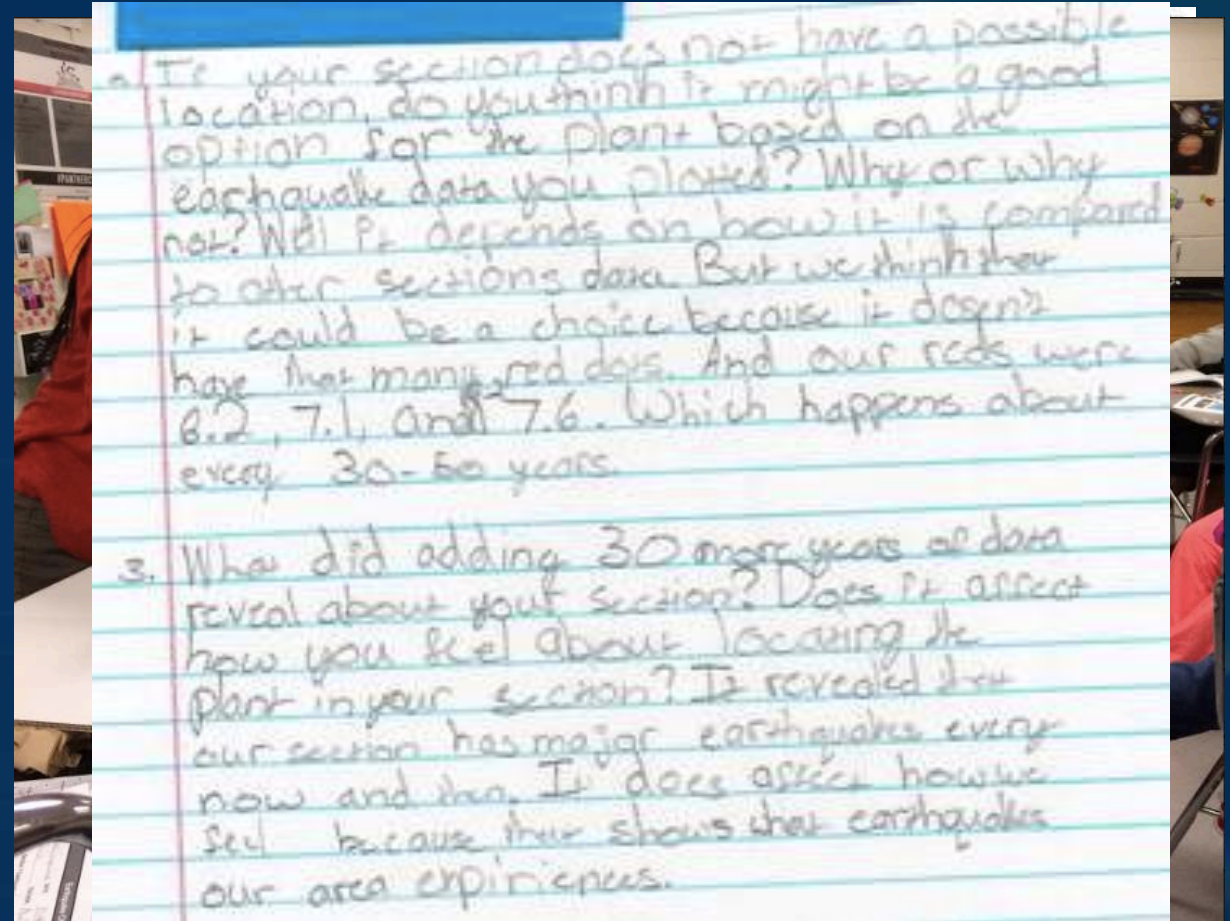 a. If your section does not have a possible
location, do you think it might be a good
option for the plant based on the
earthquake data you plotted? Why or why
not? Well it depends on how it is compared
to other sections data. But we think that
it could be a choice because it dosen't
have that many red dots. And our reds were
8.2, 7.1, and 7.6. Which happens about
every 30-50 years.
3. What did adding 30 more years of data
reveal about your section? Does it affect
how you feel about locating the
plant in your section? It revealed that
our section has major earthquakes every
now and then. It does affect how we
feel because that shows what earthquakes
our area expiriences.
#PANTHER